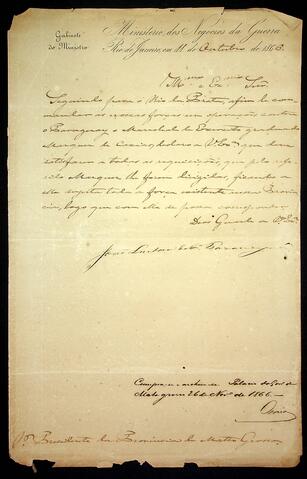 Gabinete
do Ministro
Ministerio dos Negocios da Guerra
Rio de Janeiro, em 11 de Outubro de 1866.
Illmo e Exmo Snr
Seguindo para o Rio da Prata, afim de com-
mandar as nossas forças em operações contra
o Paraguay o Marechal do Exercito graduado
Marquez de Caxias, declaro a V. Exa que deve
satisfazer a todas as requisições, que pelo refe-
rido Marquez lhe forem dirigidas, ficando a
elle sujeita toda a força existente nessa Provin-
cia, logo que com ella se possa corresponder.
Deos Guarde a V. Exa
João Lustosa da Cunha Paranaguá
Cumpra-se e archive-se. Palacio do Gov. de
Mato grosso 26 de Nov. de 1866.
Sr. Presidente da Provincia de Matto Grosso